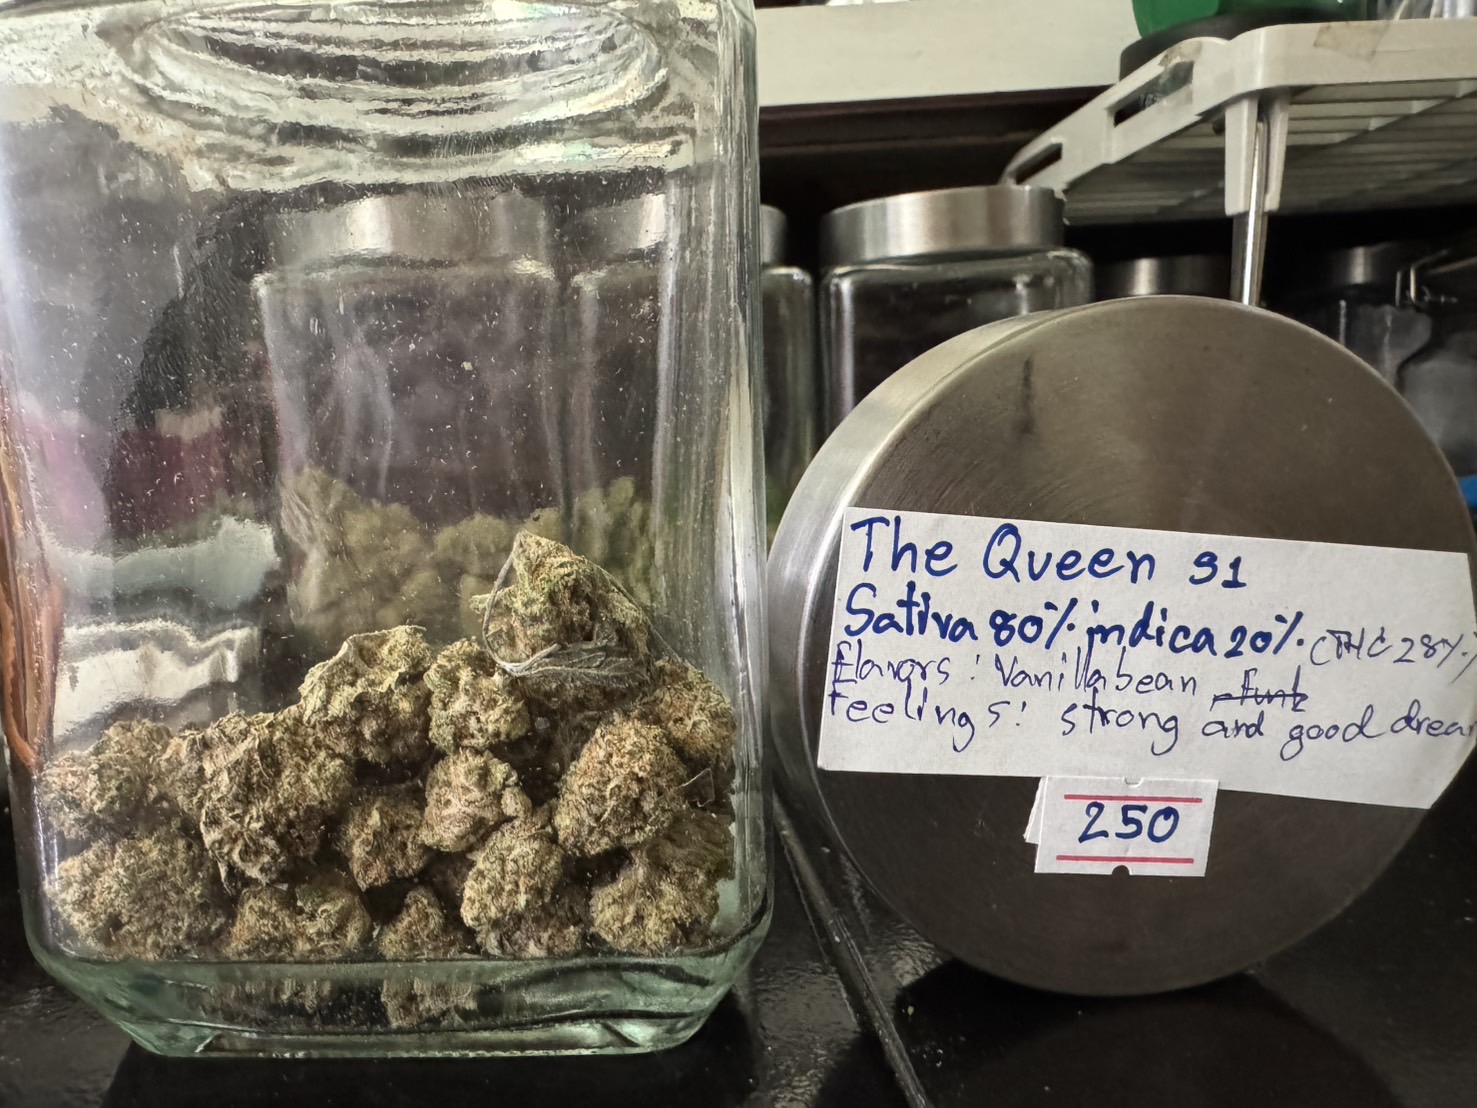 The Queen S1
Sativa 80% indica 20% (THC 28%)
flavors: Vanilla bean funk
feelings: strong and good drea
250